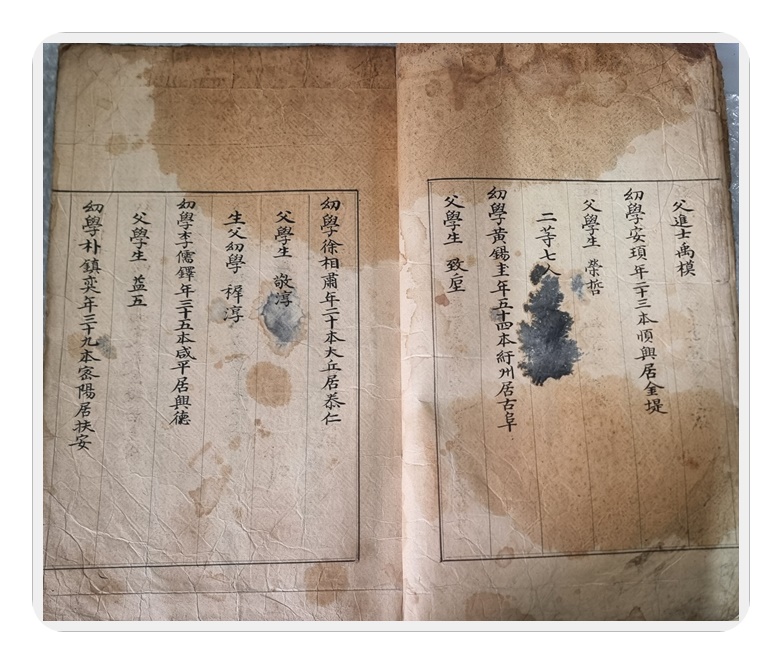 父進士禹模
幼學安頊年二十三本順興居金堤
父學生 榮哲
二等七人
幼學黃錫圭年五十四本紆州居古阜
父學生 致垕
幼學徐相肅年二十本大丘居泰仁
父學生 敬淳
生父幼學 穉淳
幼學李儒鐸年三十五本咸平居興德
父學生 益五
幼學朴鎮奕年三十九本密陽居扶安